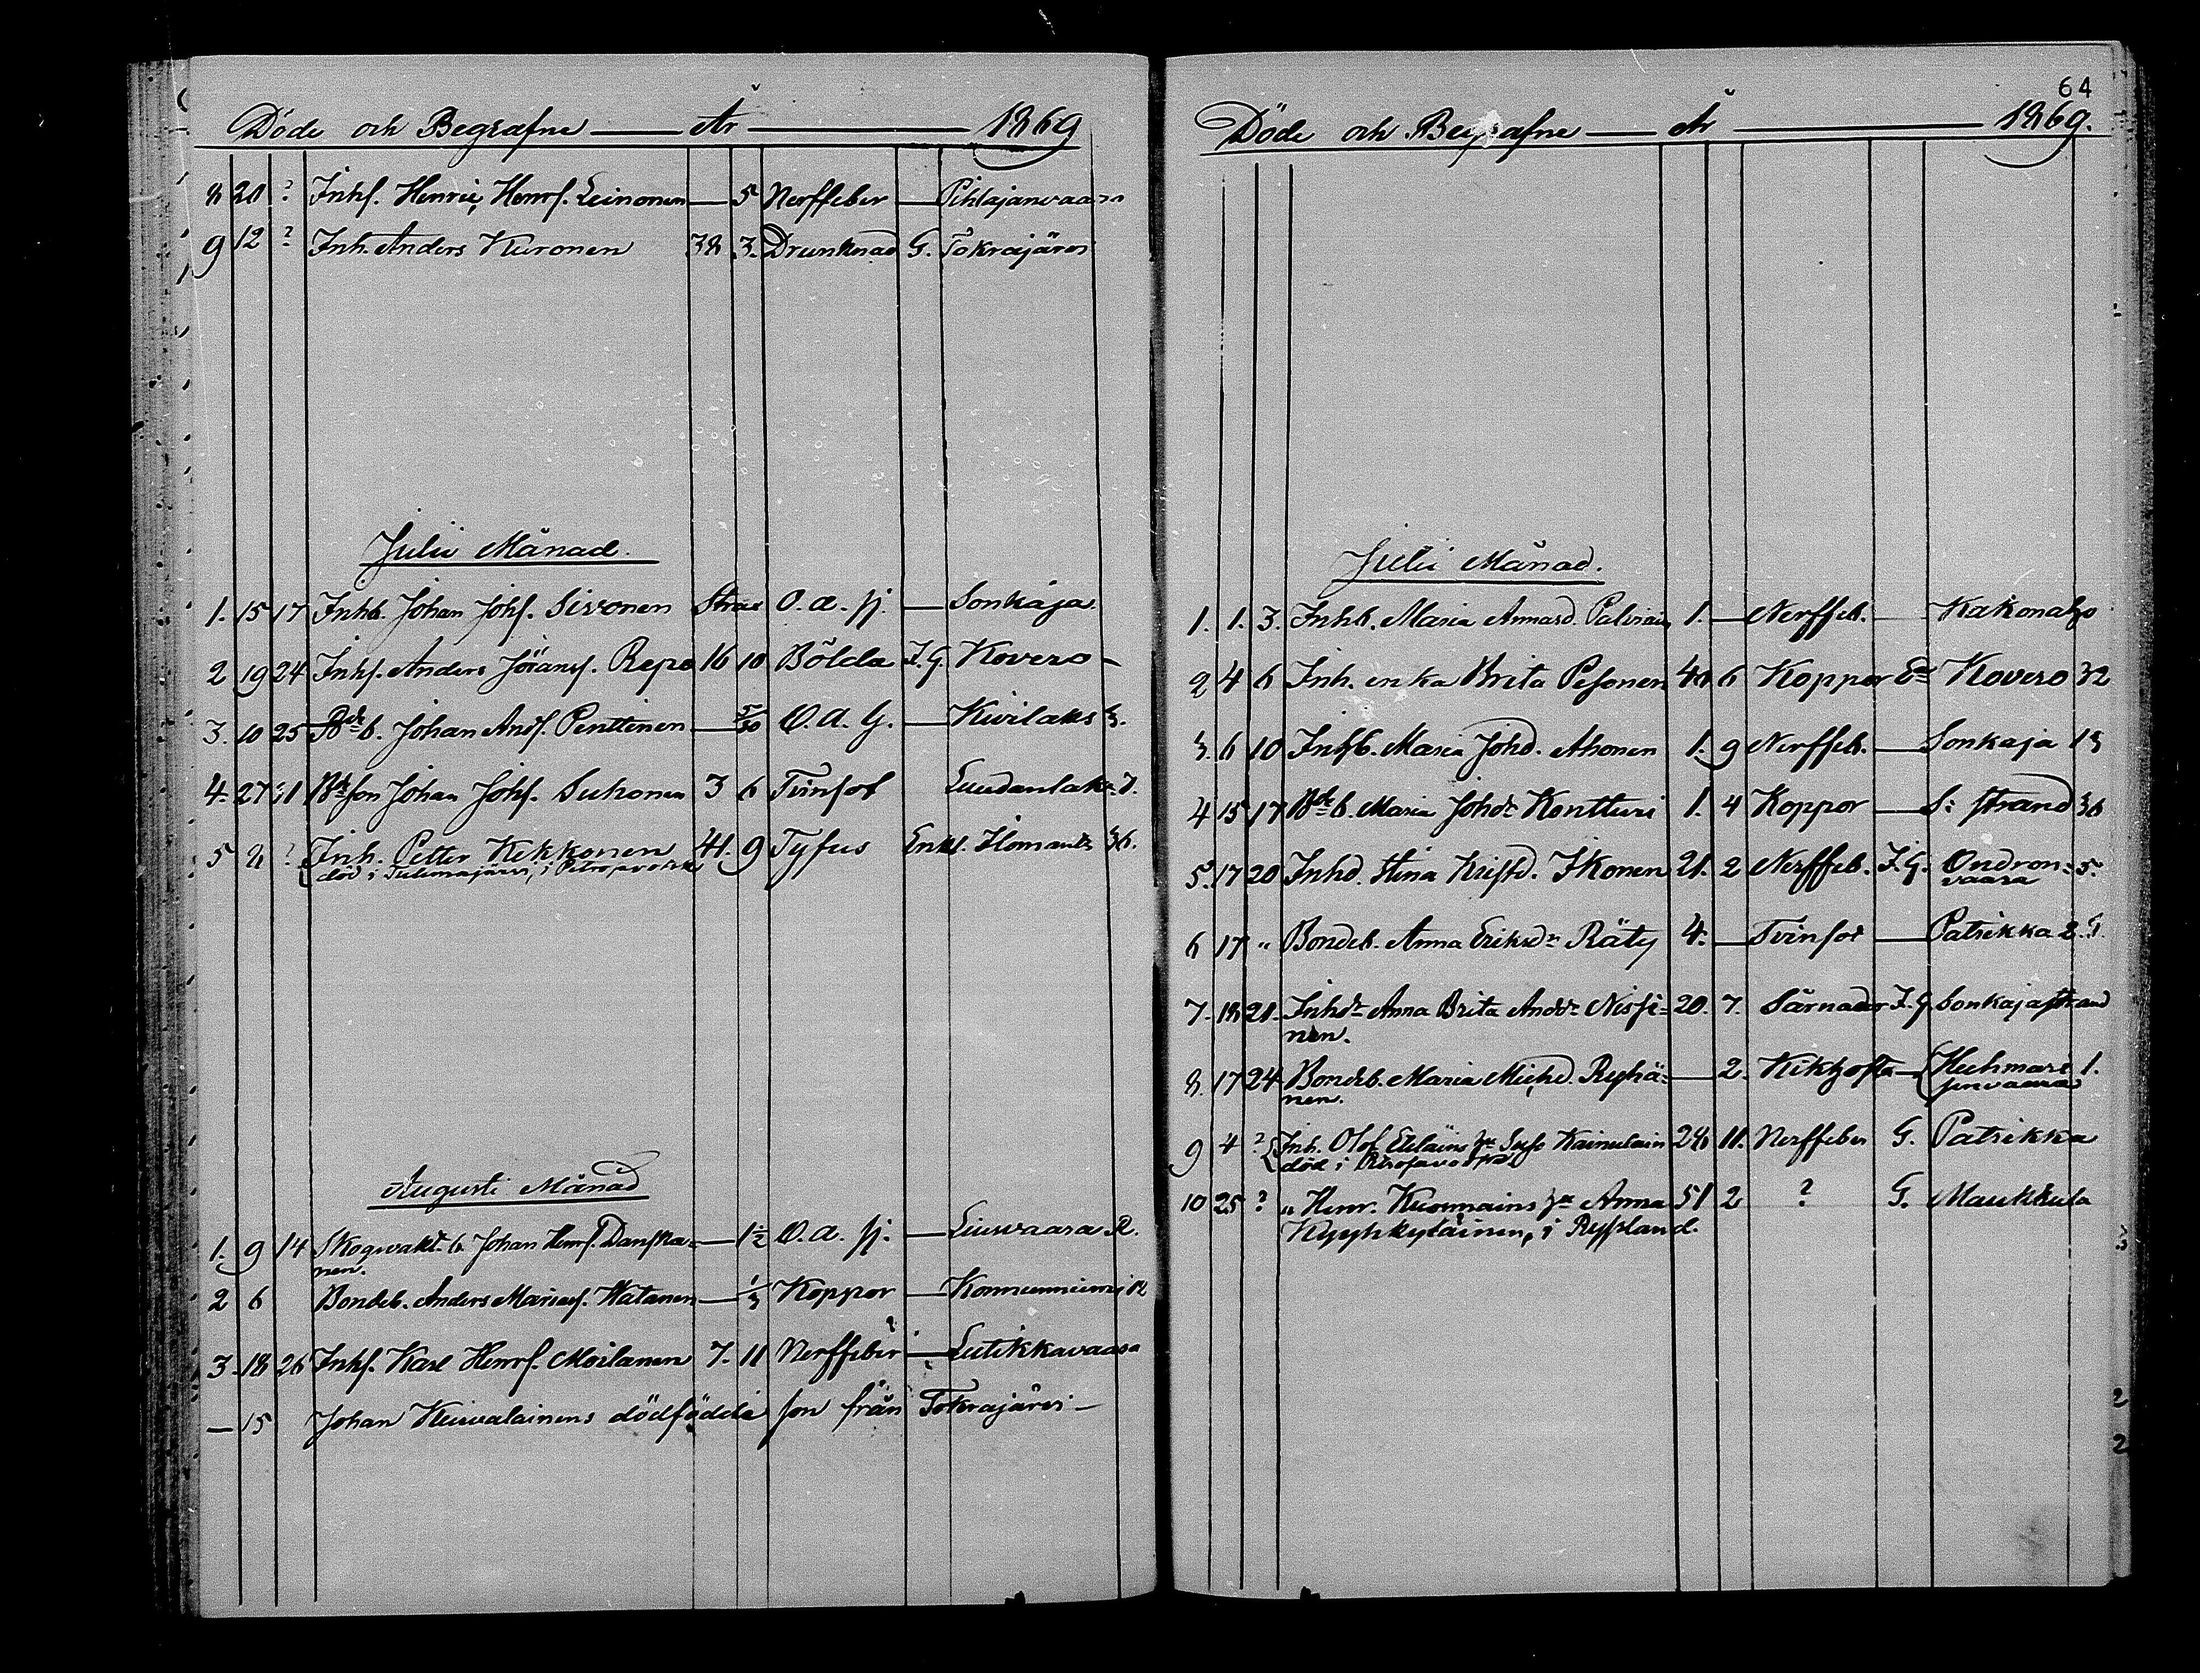 Döde och Begrafne År 1869
8 20 ? Inhs. Henric Henrs. Leinonen — 5 Nerffeber — Pihlajanvaara
9 12 ? Inh. Anders Kuronen 38 3. Drunknad G. Tokrajärvi
Julii Månad.
1. 15 17 Inhb. Johan Johs. Sivonen Strax O. a. sj. — Sonkaja
2 19 24 Inhs. Anders Jöransf. Repo 16 10 Bölda I. G. Kovero —
3. 10 25 Bdeb. Johan Ands. Penttinen — 5/30 O. a. G. — Kivilaks 3.
4. 27 31 Bdeson Johan Johs. Suhonen 3 6 Tvinsot Luudanlaks 7.
5 8 ? Inh. Petter Kekkonen 41. 9 Tyfus Enkl. Ilomants 36.
död i Tulemajärvi, i Petrosavodsk
Augusti Månad
1. 9 14 Skogvakt. b. Johan Henrs. Danska-
nen. — 1½ O. a. sj. — Liusvaara R.
2 6 Bondeb. Anders Mariaes. Hatanen — 1/3 Koppor — Konnunniemi 12
3. 18 26 Inhs. Karl Henrs. Moilanen 7. 11 Nerffeber — Lutikkavaara
— 15 Johan Kuivalainens dödfödde son från Tokrajärvi —
64
Döde och Begrafne År 1869.
Julii Månad.
1. 1. 3. Inhb. Maria Annasd. Palviain 1. — Nerffeb. — Kakonaho
2 4 6 Inh. enka Brita Pesonen 6 Koppor Ea Kovero 32
3. 6 10 Inhsb. Maria Johd. Ahonen 1. 9 Nerffeb. — Sonkaja 13
4 15 17 Bdeb. Maria Johdr Kontturi 1. 4 Koppor — S: strand 36
5. 17 20 Inhd. Stina Kristd. Ikonen 21. 2 Nerffeb. I. G. Ondron- 5.
vaara
6 17 " Bondeb. Anna Eriksdr Räty 4. — Tvinsot — Patrikka 2.
7. 18 21. Inhdr Anna Brita Anddr Nissi- 20. 7. Särnader I. G. Sonkajastrand
nen.
8. 17 24 Bondeb. Maria Michd. Ryhä- — 2. Kikhosta — Huhmari 1.
nen. senvaara
9 4 ? Inh. Olof Eteläins hu Susa Kainulain 28 11. Nerffeber G. Patrikka
död i Petrosavodsk
10 25 ? " Henr. Kuonnains hu Anna 51 2 ? G. Maukkula
Kyyhkyläinen, i Ryssland.